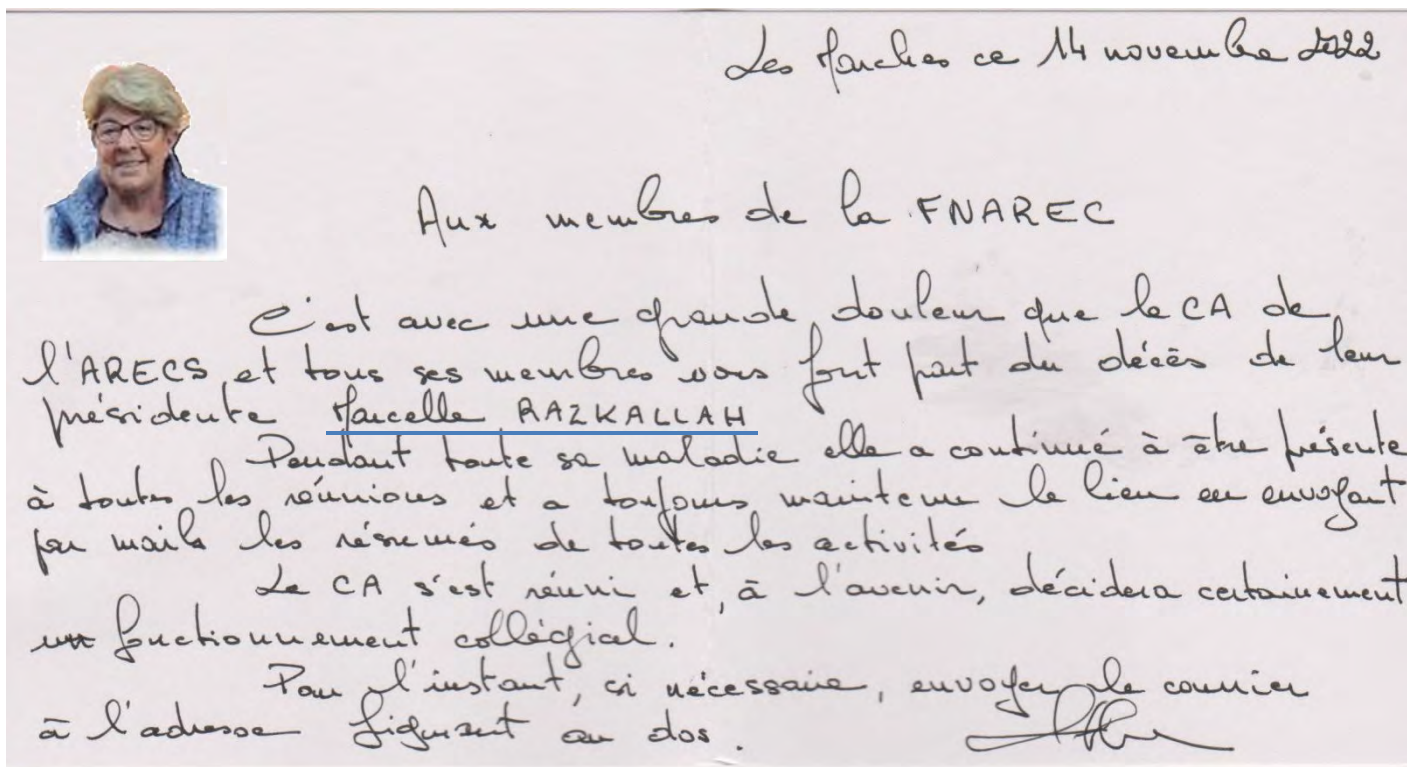 Les Marches ce 14 novembre 2022
Aux membres de la FNAREC
C'est avec une grande douleur que le CA de
l'ARECS et tous ses membres vous font part du décès de leur
présidente Marcelle RAZKALLAH
Pendant toute sa maladie elle a continué à être présente
à toutes les réunions et a toujours maintenu le lien en envoyant
par mails les résumés de toutes les activités
Le CA s'est réuni et, à l'avenir, décidera certainement
un fonctionnement collégial.
Pour l'instant, si nécessaire, envoyer le courrier
à l'adresse figurant au dos.